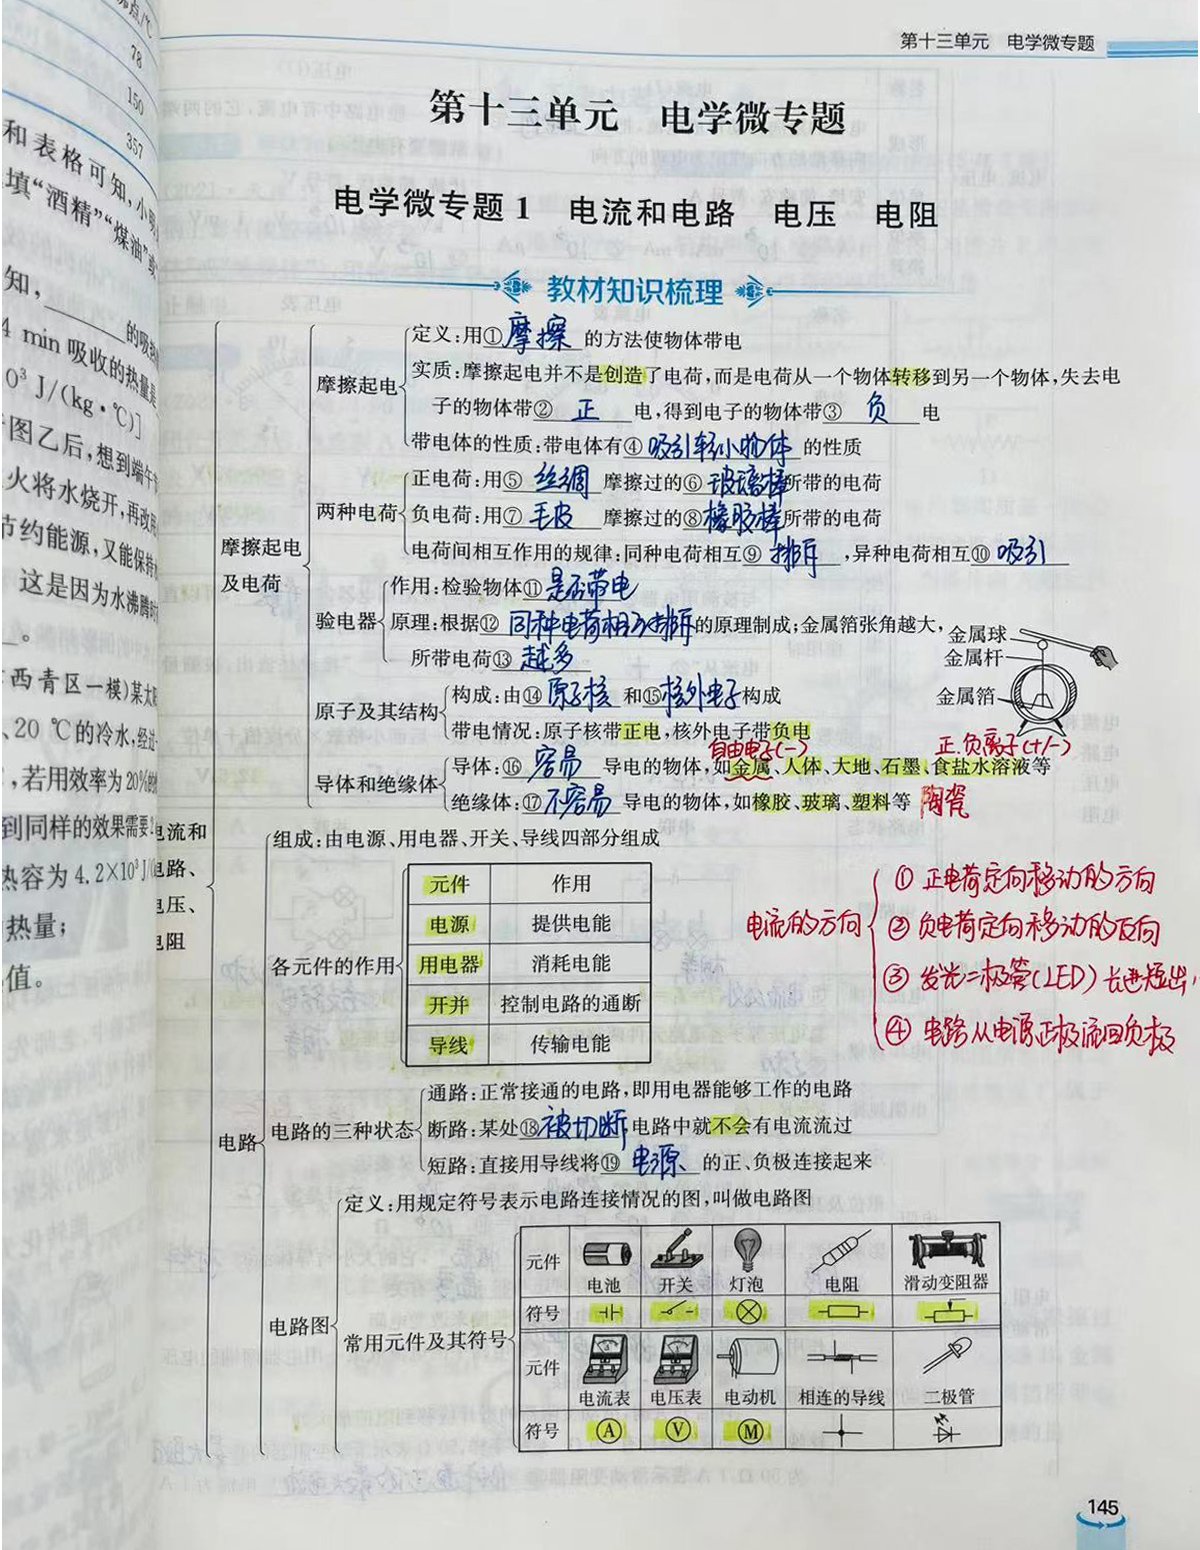 沸点/℃
78
150
357
和表格可知,小明
填“酒精”“煤油”或
知,
的吸热
4 min 吸收的热量是
0³ J/(kg·℃)]
图乙后,想到端午节
火将水烧开,再改用
节约能源,又能保持水
这是因为水沸腾时
。
西青区一模)某太
、20 ℃的冷水,经过一
,若用效率为20%的
到同样的效果需要
热容为 4.2×10³ J/(
热量;
值。
第十三单元 电学微专题
第十三单元 电学微专题
电学微专题 1 电流和电路 电压 电阻
教材知识梳理
电流和
电路、
电压、
电阻
摩擦起电
及电荷
摩擦起电
定义:用①摩擦的方法使物体带电
实质:摩擦起电并不是创造了电荷,而是电荷从一个物体转移到另一个物体,失去电
子的物体带②正电,得到电子的物体带③负电
带电体的性质:带电体有④吸引轻小物体的性质
两种电荷
正电荷:用⑤丝绸摩擦过的⑥玻璃棒所带的电荷
负电荷:用⑦毛皮摩擦过的⑧橡胶棒所带的电荷
电荷间相互作用的规律:同种电荷相互⑨排斥,异种电荷相互⑩吸引
验电器
作用:检验物体⑪是否带电
原理:根据⑫同种电荷相互排斥的原理制成;金属箔张角越大,
所带电荷⑬越多
金属球
金属杆
金属箔
原子及其结构
构成:由⑭原子核和⑮核外电子构成
带电情况:原子核带正电,核外电子带负电
自由电子(-)
正.负离子(+/-)
导体和绝缘体
导体:⑯容易导电的物体,如金属、人体、大地、石墨、食盐水溶液等
绝缘体:⑰不容易导电的物体,如橡胶、玻璃、塑料等 陶瓷
电路
组成:由电源、用电器、开关、导线四部分组成
各元件的作用
元件 作用
电源 提供电能
用电器 消耗电能
开并 控制电路的通断
导线 传输电能
电流的方向
① 正电荷定向移动的方向
② 负电荷定向移动的反向
③ 发光二极管(LED)长进短出,
④ 电路从电源正极流回负极
电路的三种状态
通路:正常接通的电路,即用电器能够工作的电路
断路:某处⑱被切断,电路中就不会有电流流过
短路:直接用导线将⑲电源的正、负极连接起来
电路图
定义:用规定符号表示电路连接情况的图,叫做电路图
常用元件及其符号
元件 电池 开关 灯泡 电阻 滑动变阻器
符号
元件 电流表 电压表 电动机 相连的导线 二极管
符号 A V M
145